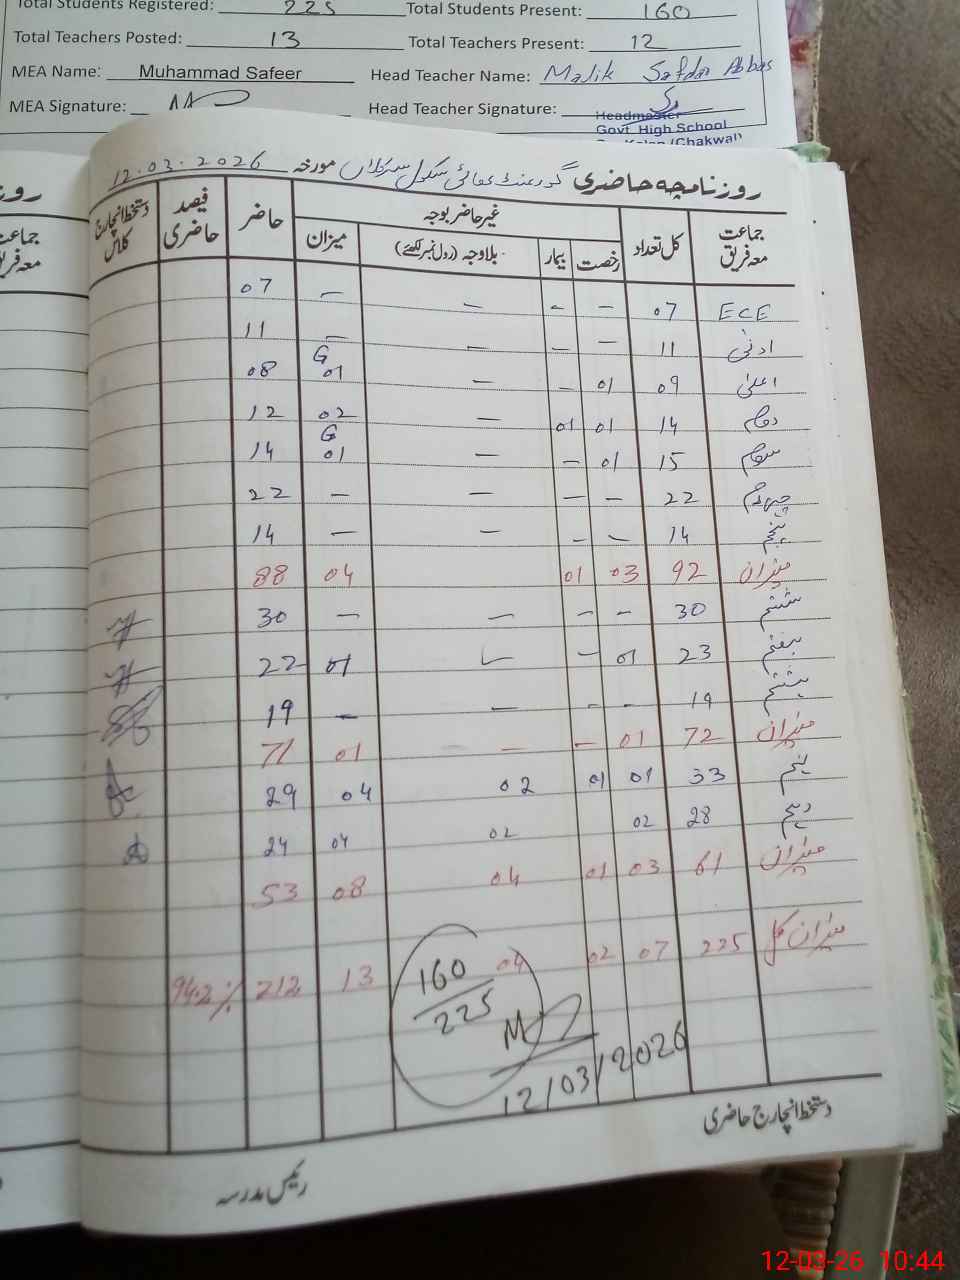 Total Students Registered: 225 Total Students Present: 160
Total Teachers Posted: 13 Total Teachers Present: 12
MEA Name: Muhammad Safeer Head Teacher Name: Malik Safdar Abbas
MEA Signature: Head Teacher Signature:
Headmaster
Govt. High School
Kalan (Chakwal)
روزنامچہ حاضری گورنمنٹ ہائی سکول سرکلاں مورخہ 12.03.2026
جماعت معہ فریق کل تعداد غیر حاضر بوجہ حاضر فیصد حاضری دستخط انچارج کلاس
رخصت بیمار بلاوجہ (رول نمبر لکھئے) میزان
ECE 07 – – – – 07
ادنیٰ 11 – – – – 11
اعلیٰ 09 01 – – G 01 08
دوم 14 01 01 – 02 12
سوم 15 01 – – G 01 14
چہارم 22 – – – – 22
پنجم 14 – – – – 14
میزان 92 03 01 04 88
ششم 30 – – – – 30
ہفتم 23 01 – – 01 22
ہشتم 19 – – – – 19
میزان 72 01 – – 01 71
نہم 33 01 01 02 04 29
دہم 28 02 02 04 24
میزان 61 03 01 04 08 53
میزان کل 225 07 02 04 13 212 94.2%
160/225
12/03/2026
دستخط انچارج حاضری
رئیس مدرسہ
12-03-26 10:44